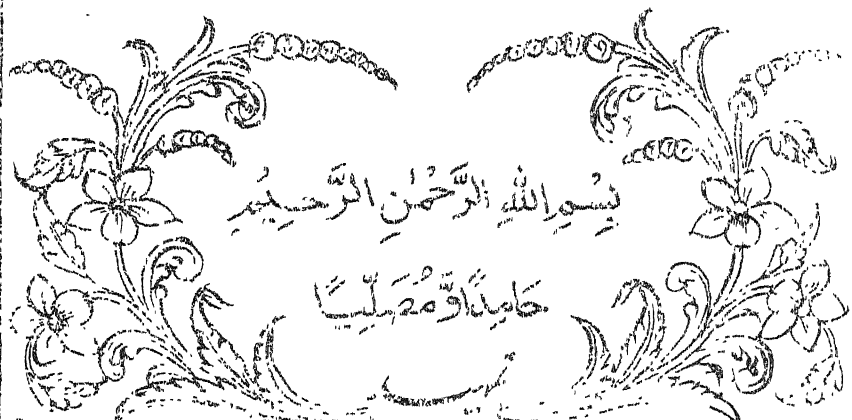 بِسْمِ اللهِ الرَّحْمٰنِ الرَّحِيْمِ
حَامِدًا وَّمُصَلِّيًا